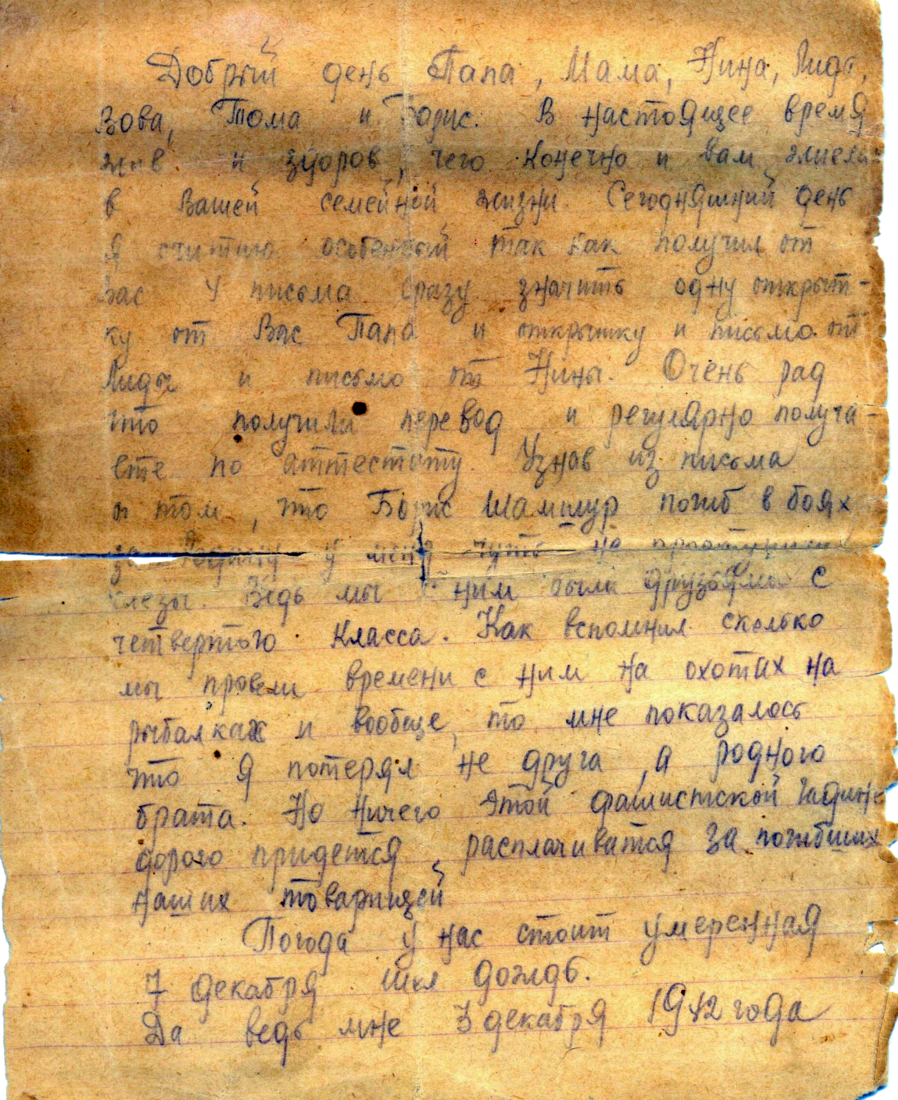 Добрый день Папа, Мама, Нина, Лида,
Вова, Тома и Борис. В настоящее время
жив и здоров, чего конечно и вам желаю
в Вашей семейной жизни. Сегодняшний день
я считаю особенный так как получил от
Вас 4 письма сразу значить одну открыт-
ку от Вас Папа и открытку и письмо от
Лиды и письмо от Нины. Очень рад
что получили перевод и регулярно получа-
ете по аттестату. Узнав из письма
о том, что Борис Шамшур погиб в боях
за Родину у меня чуть не
слезы. Ведь мы с ним были друзьями с
четвертого класса. Как вспомнил сколько
мы провели времени с ним на охотах на
рыбалках и вообще, то мне показалось
что я потерял не друга, а родного
брата. Но ничего этой фашистской гадине
дорого придется расплачиватся за погибших
наших товарищей
Погода у нас стоит умеренная
7 декабря шел дождь.
Да ведь мне 3 декабря 1942 года